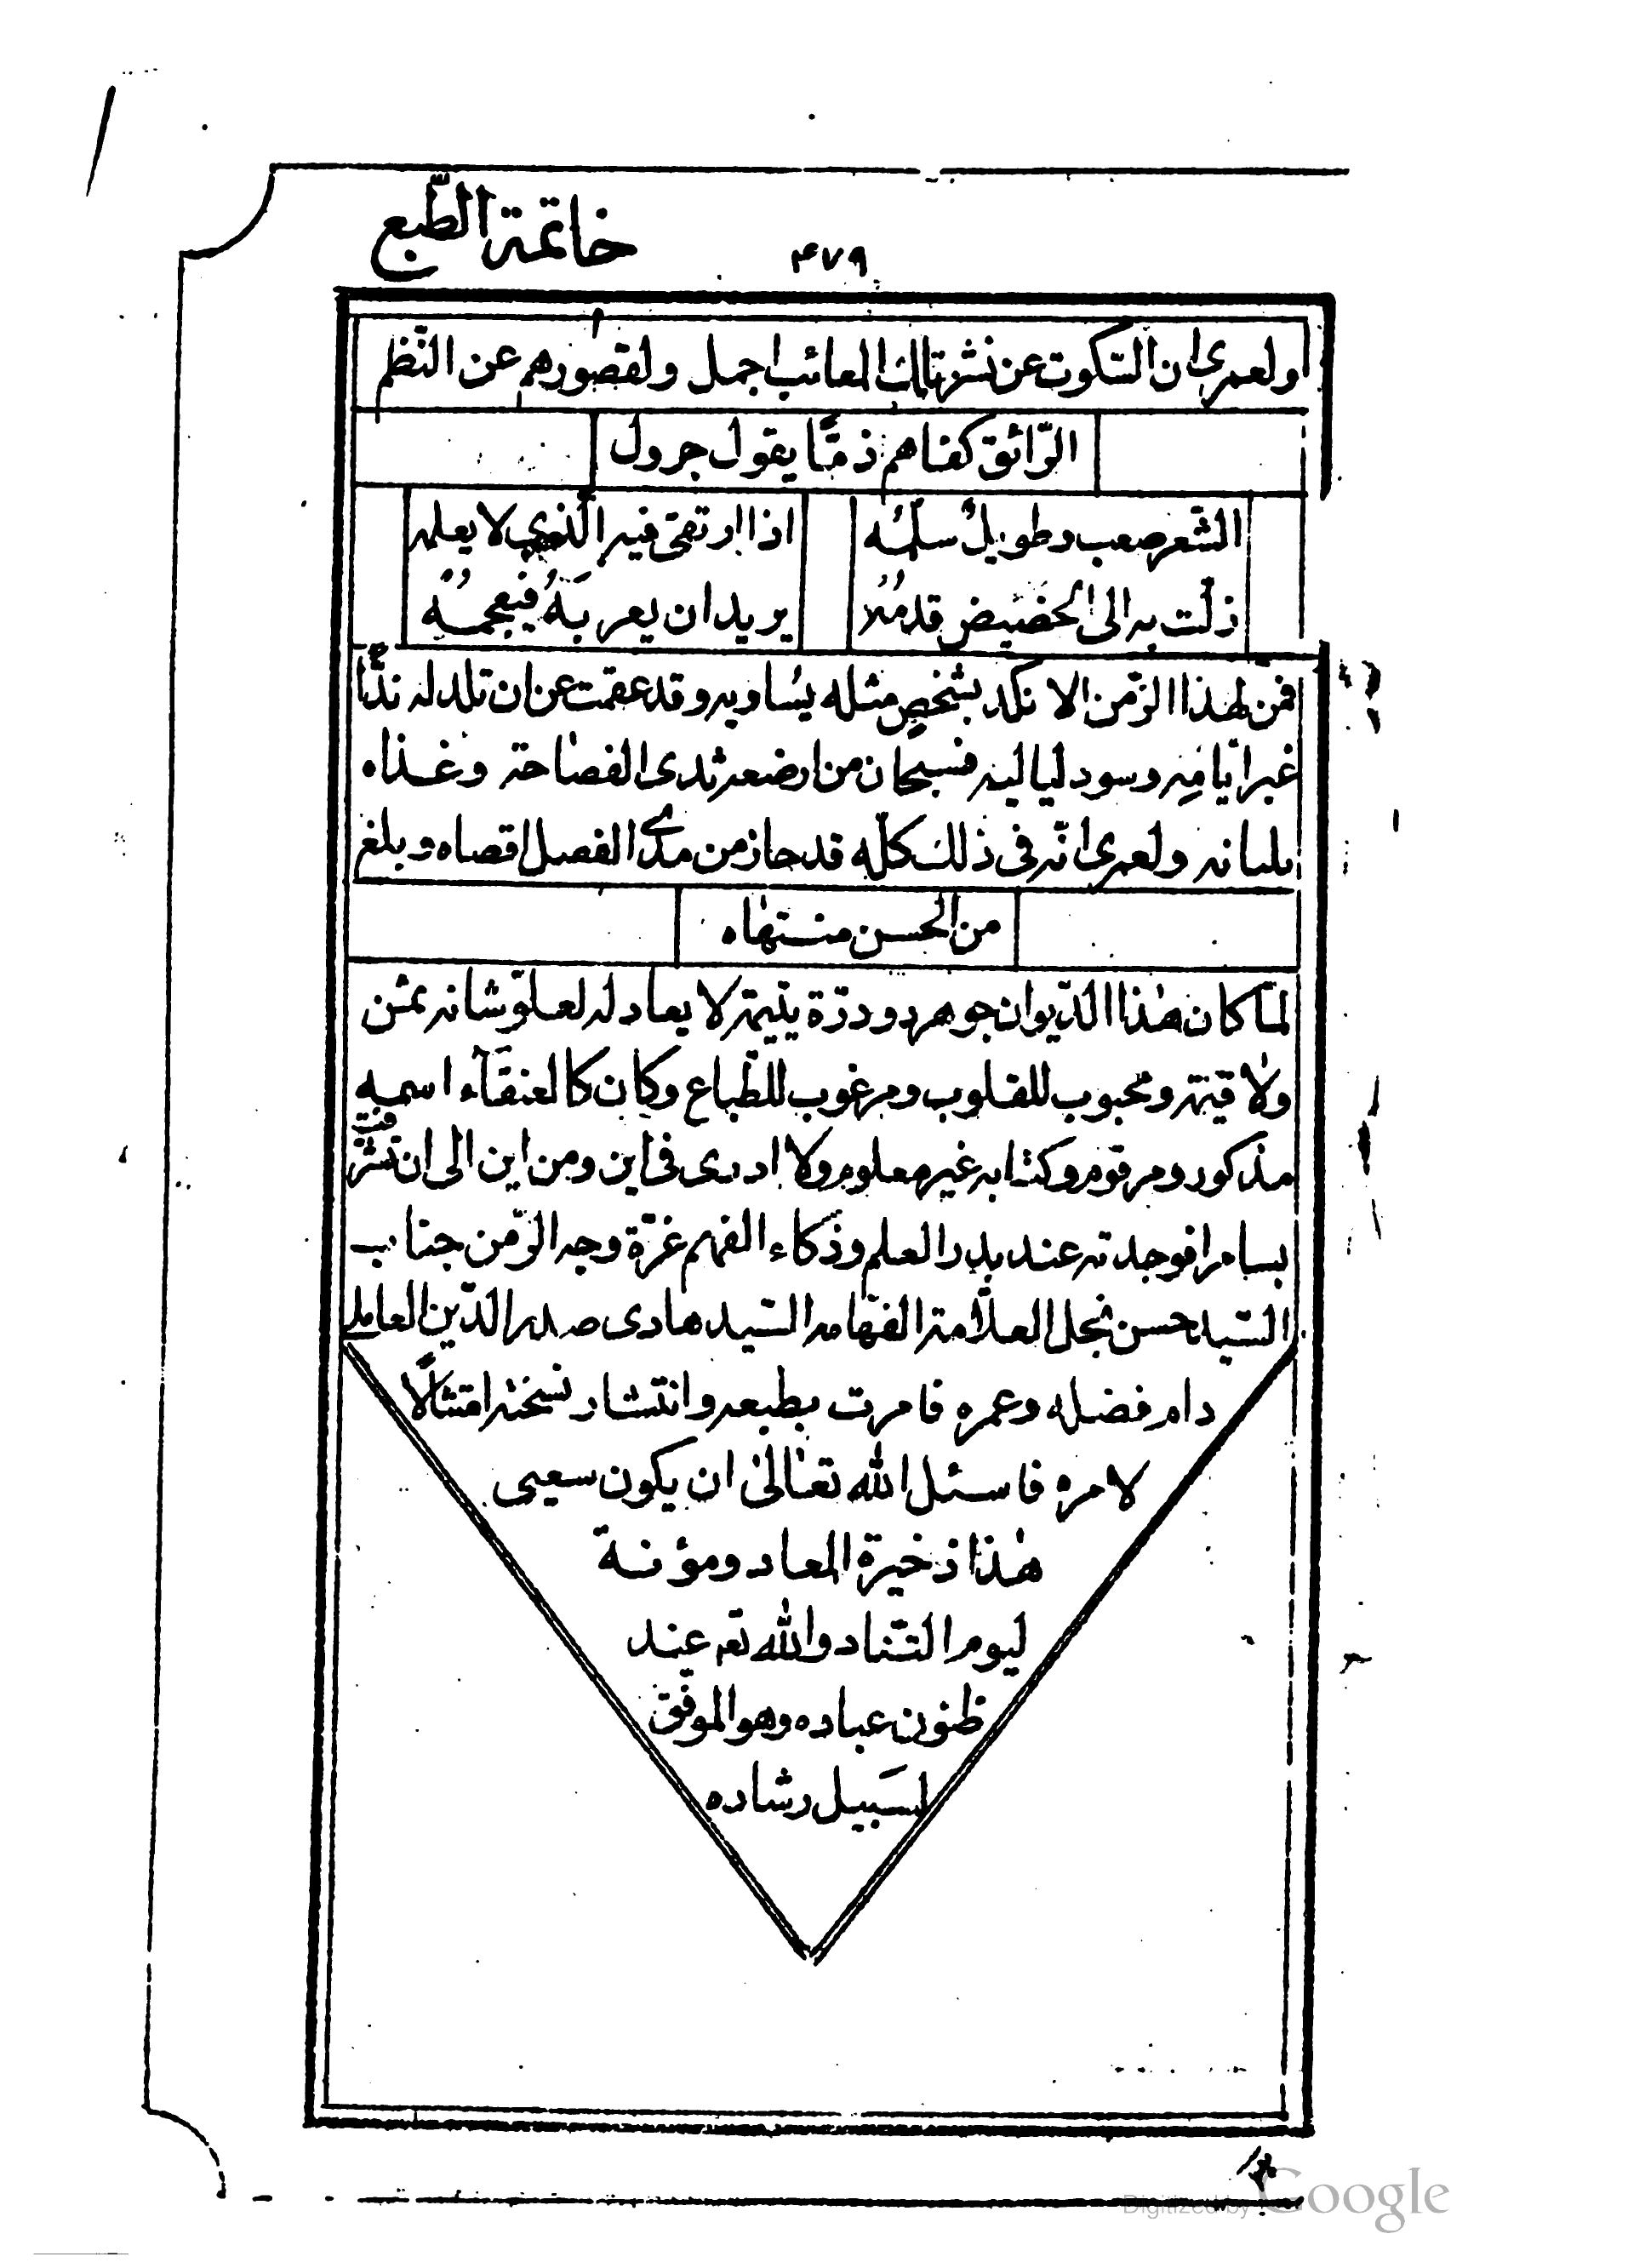 خاتمة الطّبع
۴۷۹
ولعمري ان السّكوت عن نشر تلك المعائب اجمل ولقصورهم عن النّظم
الرّائق كفاهم ذمّا يقول جرول
الشّعر صعب وطويل سلّمه
اذا ارتقى فيه الّذي لا يعلمه
زلّت به الى الحضيض قدمه
يريد ان يعربه فيعجمه
فمن لهذا الزّمن الانكد بشخص مثله يساويه وقد عقمت عن ان تلد له ندّا
غبر ايّامه وسود لياليه فسبحان من ارضعه ثدى الفصاحة وغذاه
بلبانه ولعمرى انّه فى ذلك كلّه قد حاز من مدى الفضل اقصاه وبلغ
من الحسن منتهاه
لمّا كان هذا الدّيوان جوهر ودرّة يتيمة لا يعادله لعلوّ شانه ثمن
ولا قيمة ومحبوب للقلوب ومرغوب للطّباع وكان كالعنقآء اسمه
مذكور ومرقوم وكتابه غير معلوم ولا ادرى فى اين ومن اين الى ان تشرّفت
بسامرا فوجدته عند بدر العلم وذكاء الفهم غرّة وجه الزّمن جناب
السّيد حسن نجل العلاّمة الفهّامه السّيد هادى صدر الدّين العاملي
دام فضله وعمره فامرت بطبعه وانتشار نسخته امتثالًا
لامره فاسئل الله تعالى ان يكون سعيى
هذا ذخيرة المعاد ومؤنة
ليوم التّناد والله تعه عند
ظنون عباده وهو الموفق
لسبيل رشاده
Digitized by Google